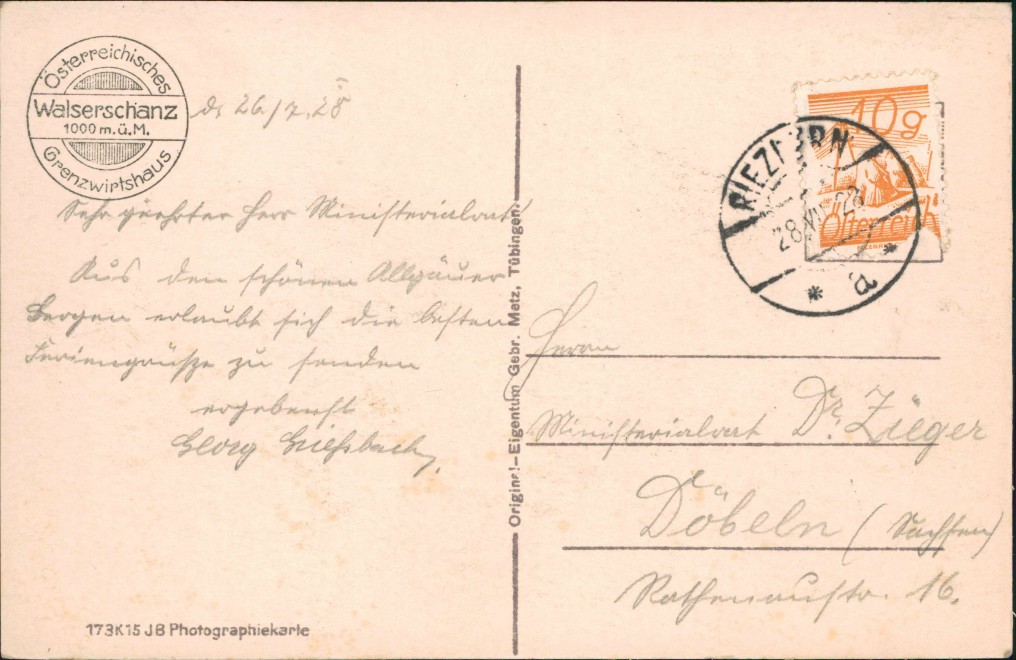 Österreichisches
Walserschanz
1000 m.ü.M.
Grenzwirtshaus
d. 26./7.28
Sehr geehrter Herr Ministerialrat
Aus den schönen Allgäuer
Bergen erlaubt sich die besten
Feriengrüße zu senden
ergebenst
Georg
Original-Eigentum Gebr. Metz, Tübingen.
173K15 JB Photographiekarte
10g
Österreich
RIEZLERN
28.VII.28
* a *
Herrn
Ministerialrat Dr. Zieger
Döbeln (Sachsen)
Rathenaustr. 16.